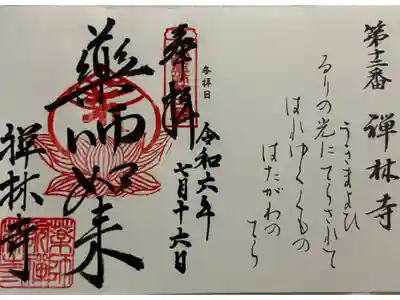 第十二番 禅林寺
うきまよひ
るりの光にてらされて
はれゆくくもの
はたがわの
てら
参拝日
奉拝
令和六年
七月十六日
薬師如来
禅林寺